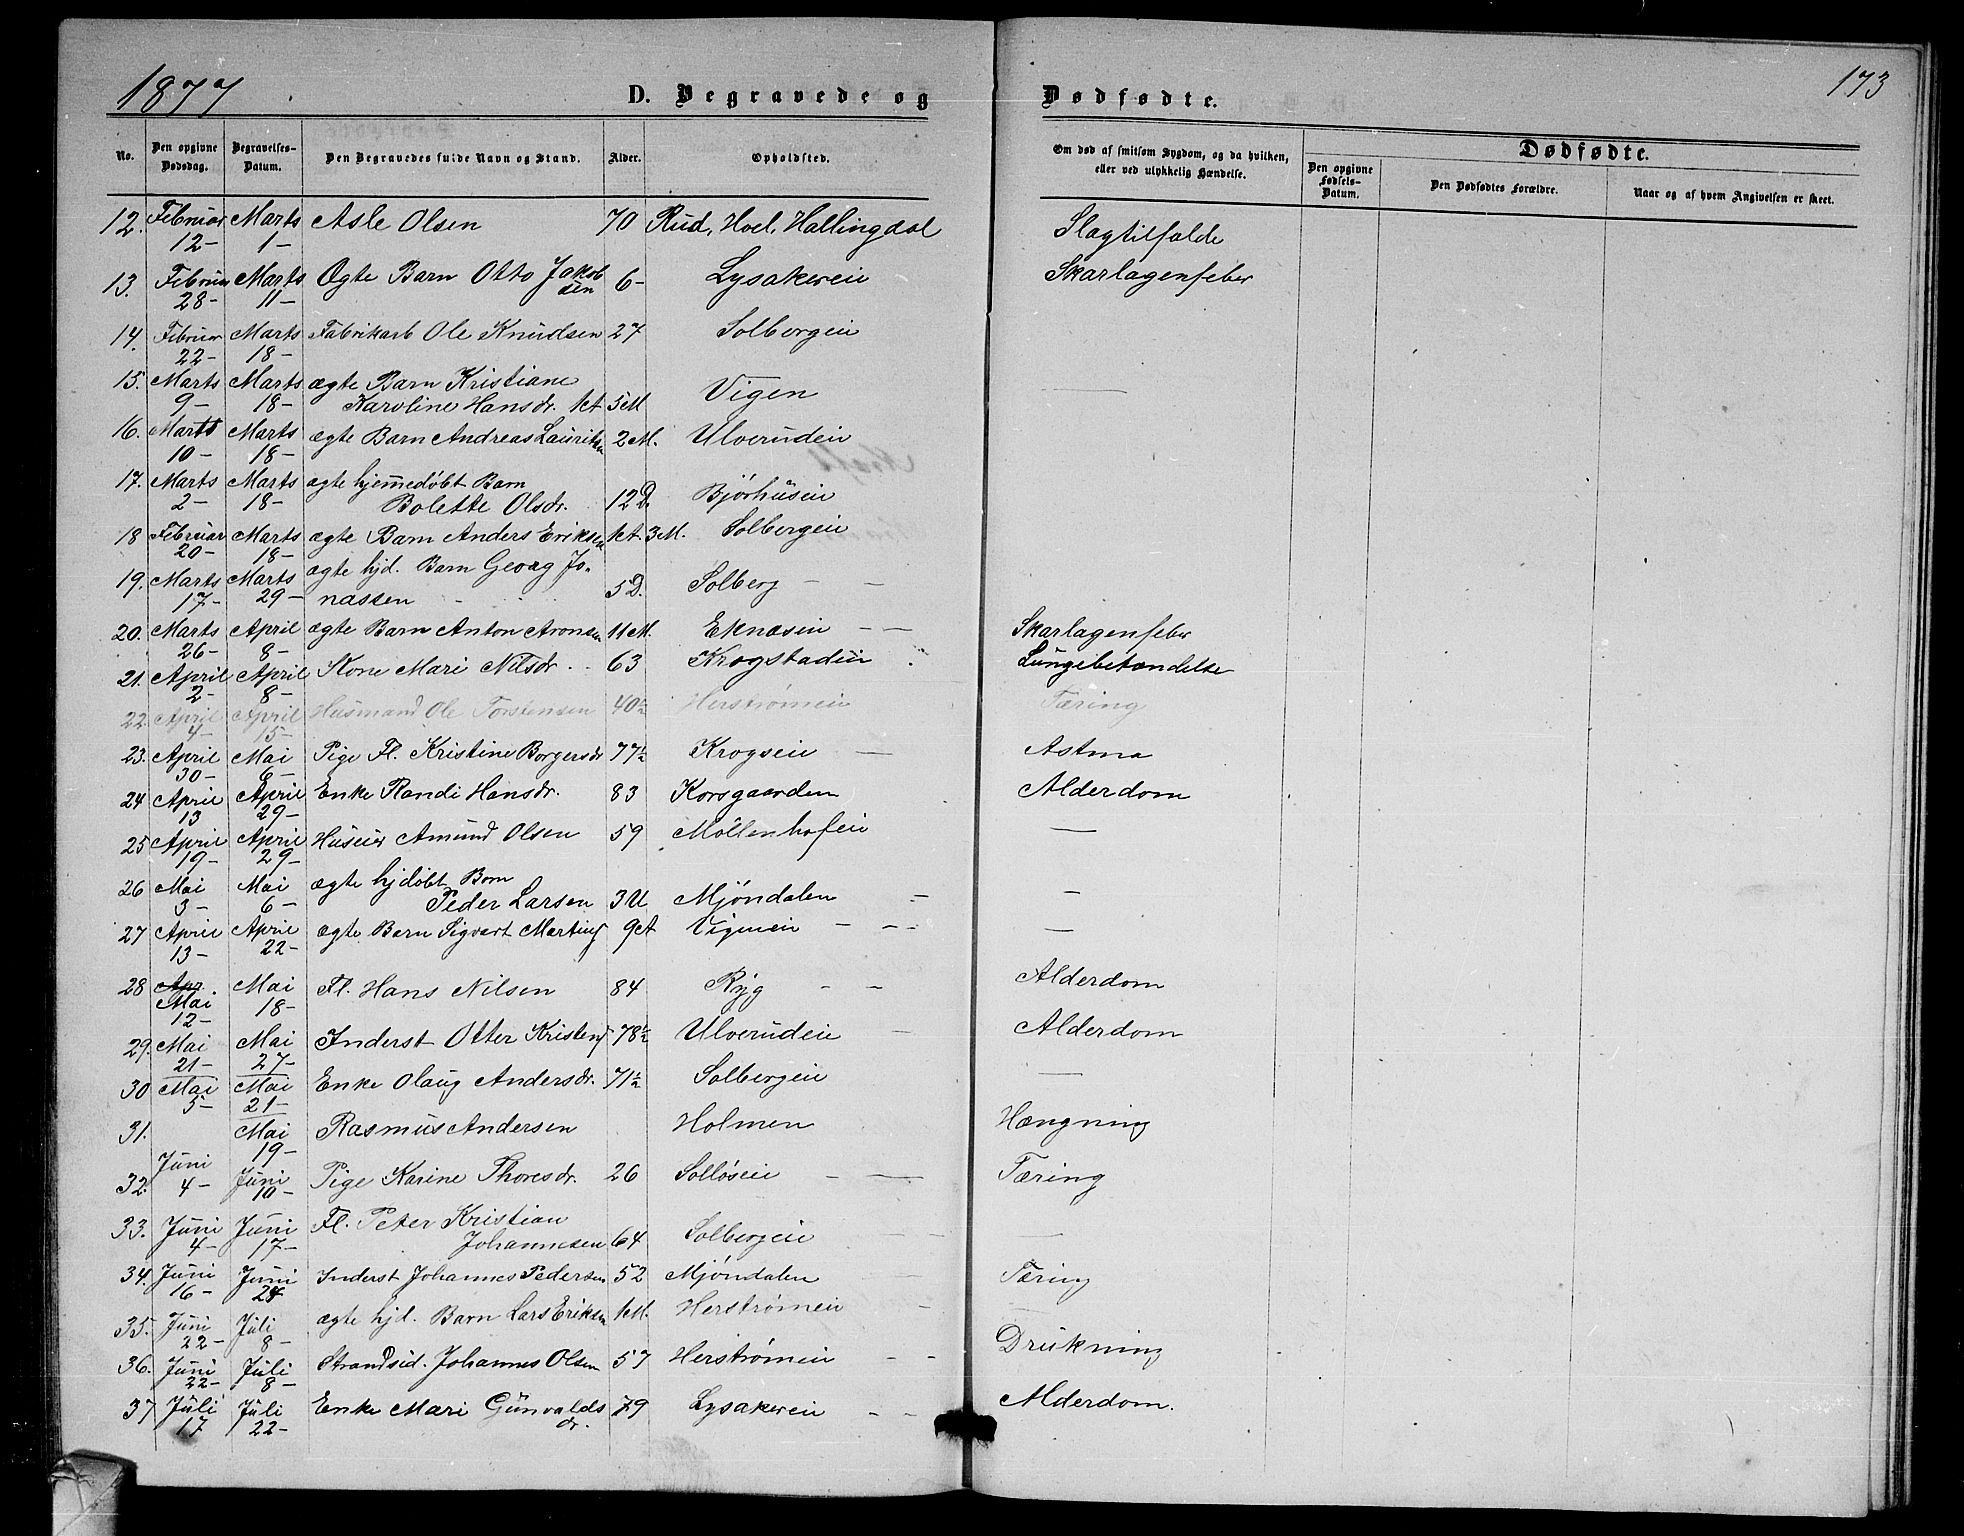 1877 D. Begravede og Dødfødte. 173
No. Den opgivne Dødsdag. Begravelses-Datum. Den Begravedes fulde Navn og Stand. Alder. Opholdsted. Om død af smitsom Sygdom, og da hvilken, eller ved ulykkelig Hændelse. Dødfødte.
Den opgivne Fødsels-Datum. Den Dødfødtes Forældre. Naar og af hvem Angivelsen er skeet.
12. Februar 12- Marts 1- Asle Olsen 70 Rud, Hoel, Hallingdal Slagtilfælde
13. Februar 28- Marts 11- Ægte Barn Otto Jakobsen 6- Lysakereie Skarlagenfeber
14. Februar 22- Marts 18- Fabrikarb Ole Knudsen 27 Solbergeie
15. Marts 9- Marts 18- ægte Barn Kristiane
Karoline Hansdr. 1A 5M Vigen —
16. Marts 10- Marts 18- ægte Barn Andreas Lauritsen 2M. Ulverudeie
17. Marts 2- Marts 18- ægte hjemmedøbt Barn
Bolette Olsdr. 12D. Bjørhuseie
18 Februar 20- Marts 18- ægte Barn Anders Eriksen 1A. 3M. Solbergeie
19. Marts 17- Marts 29- ægte hjd. Barn Georg Jo-
nassen 5D. Solberg — —
20. Marts 26- April 8- ægte Barn Anton Aronsen 11M. Eknæseie — — Skarlagenfeber
21. April 2- April 8- Kone Mari Nilsdr. 63 Krogstadeie Lungebetændelse
22. April 4- April 15- Husmand Ole Torstensen 40½ Herstrømeie Tæring
23. April 30- Mai 6- Pige Fl. Kristine Borgersdr 77½ Krogseie — Astma
24 April 13 April 29- Enke Randi Hansdr. 83 Korsgaarden Alderdom
25 April 19- April 29- Huseier Amund Olsen 59 Møllenhofeie —
26 Mai 3- Mai 6- ægte hjdøbt Barn
Peder Larsen 3U Mjøndalen — —
27 April 13- April 22- ægte Barn Sigvart Martins 9A Vigeneie — — — —
28 Apr. Mai 12- Mai 18- Fl. Hans Nilsen 84 Ryg — — Alderdom
29. Mai 21- Mai 27- Inderst Otter Kristens 78½ Ulverudeie — Alderdom
30 Mai 5- Mai 21- Enke Olaug Andersdr. 71½ Solbergeie —
31. Mai 19- Rasmus Andersen Holmen Hængning
32. Juni 4- Juni 10- Pige Karine Thoresdr. 26 Solløseie — — Tæring
33. Juni 4- Juni 17- Fl. Peter Kristian
Johannesen 64 Solbergeie — — —
34. Juni 16- Juni 24 Inderst Johannes Pedersen 52 Mjøndalen — Tæring
35. Juni 22- Juli 8- ægte hjd. Barn Lars Eriksen 1M. Herstrømeie — —
36. Juni 22- Juli 8- Strandsid. Johannes Olsen 57 Herstrømeie — — Drukning
37 Juli 17 Juli 22- Enke Mari Gunvaldsdr. 79 Lysakereie — — Alderdom.